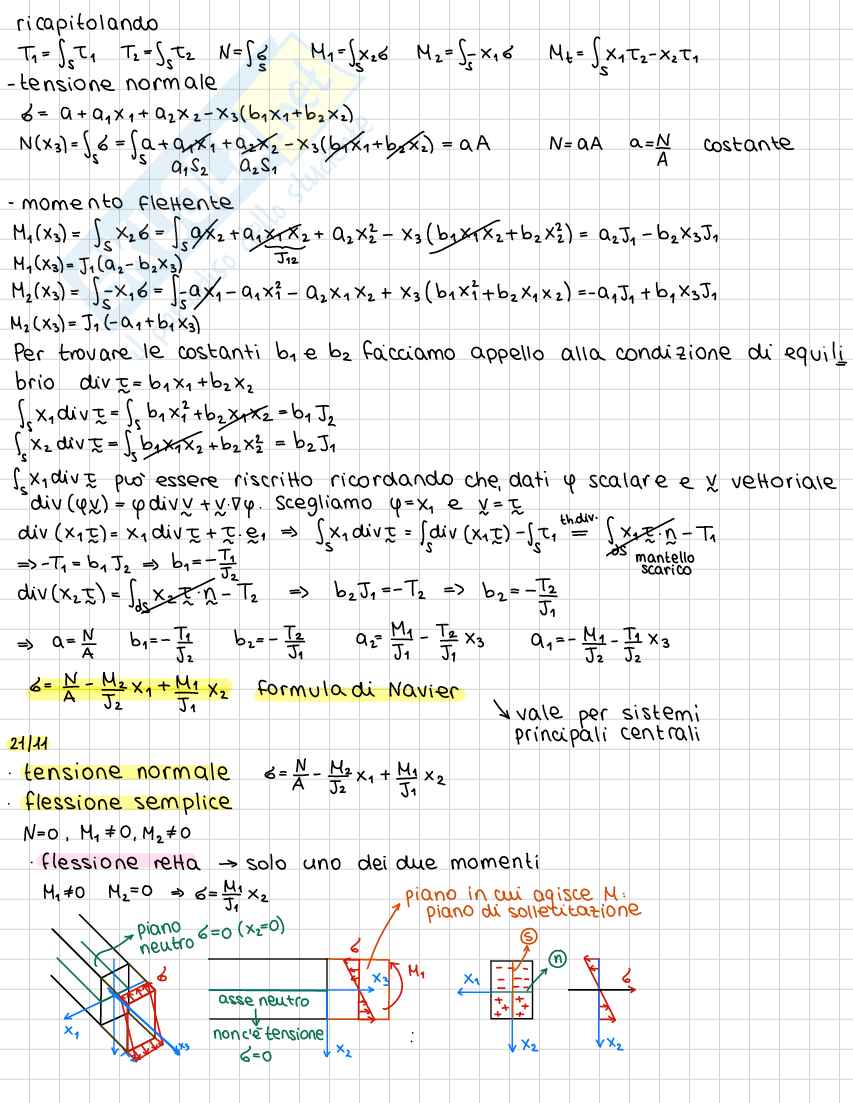 ricapitolando
T₁=∫ₛτ₁ T₂=∫ₛτ₂ N=∫ₛσ M₁=∫ₛx₂σ M₂=∫ₛ-x₁σ Mt=∫ₛx₁τ₂-x₂τ₁
-tensione normale
σ= a+a₁x₁+a₂x₂-x₃(b₁x₁+b₂x₂)
N(x₃)=∫ₛσ=∫ₛa+a₁x₁+a₂x₂-x₃(b₁x₁+b₂x₂)=aA N=aA a=N/A costante
a₁S₂ a₂S₁
- momento flettente
M₁(x₃)=∫ₛx₂σ=∫ₛax₂+a₁x₁x₂+a₂x₂²-x₃(b₁x₁x₂+b₂x₂²)=a₂J₁-b₂x₃J₁
J₁₂
M₁(x₃)=J₁(a₂-b₂x₃)
M₂(x₃)=∫ₛ-x₁σ=∫ₛ-ax₁-a₁x₁²-a₂x₁x₂+x₃(b₁x₁²+b₂x₁x₂)=-a₁J₁+b₁x₃J₁
M₂(x₃)=J₁(-a₁+b₁x₃)
Per trovare le costanti b₁ e b₂ facciamo appello alla condizione di equili
brio div τ=b₁x₁+b₂x₂
∫ₛx₁div τ=∫ₛb₁x₁²+b₂x₁x₂=b₁J₂
∫ₛx₂div τ=∫ₛb₁x₁x₂+b₂x₂²=b₂J₁
∫ₛx₁div τ può essere riscritto ricordando che, dati φ scalare e v vettoriale
div(φv)=φdiv v+v·∇φ. Scegliamo φ=x₁ e v=τ
div(x₁τ)=x₁div τ+τ·e₁ ⇒ ∫ₛx₁div τ=∫ₛdiv(x₁τ)-∫ₛτ₁ th.div. = ∫ds x₁τ·n-T₁
⇒-T₁=b₁J₂ ⇒ b₁=-T₁/J₂ mantello scarico
div(x₂τ)=∫ds x₂τ·n-T₂ ⇒ b₂J₁=-T₂ ⇒ b₂=-T₂/J₁
⇒ a=N/A b₁=-T₁/J₂ b₂=-T₂/J₁ a₂=M₁/J₁-T₂/J₁ x₃ a₁=-M₁/J₂-T₁/J₂ x₃
σ=N/A-M₂/J₂ x₁+M₁/J₁ x₂ formula di Navier
↘ vale per sistemi
principali centrali
21/11
· tensione normale σ=N/A-M₂/J₂ x₁+M₁/J₁ x₂
· flessione semplice
N=0, M₁≠0, M₂≠0
· flessione retta → solo uno dei due momenti
M₁≠0 M₂=0 ⇒ σ=M₁/J₁ x₂
piano in cui agisce M:
piano di sollecitazione
piano
neutro σ=0 (x₂=0)
σ
x₁
x₃
asse neutro
non c'è tensione
σ=0
σ
x₃
M₁
x₂
:
s
n
x₁
x₂
σ
x₂